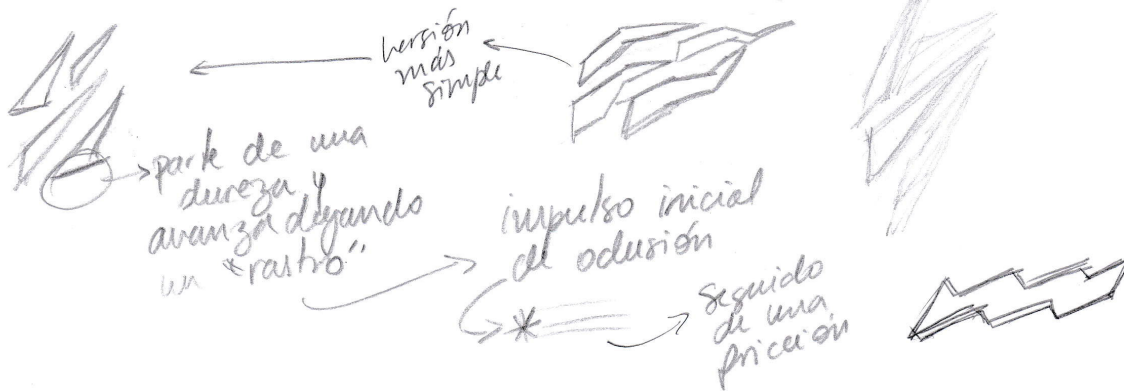 versión
más
simple
parte de una
dureza y
avanza dejando
un "rastro"
impulso inicial
de oclusión
seguido
de una
fricción